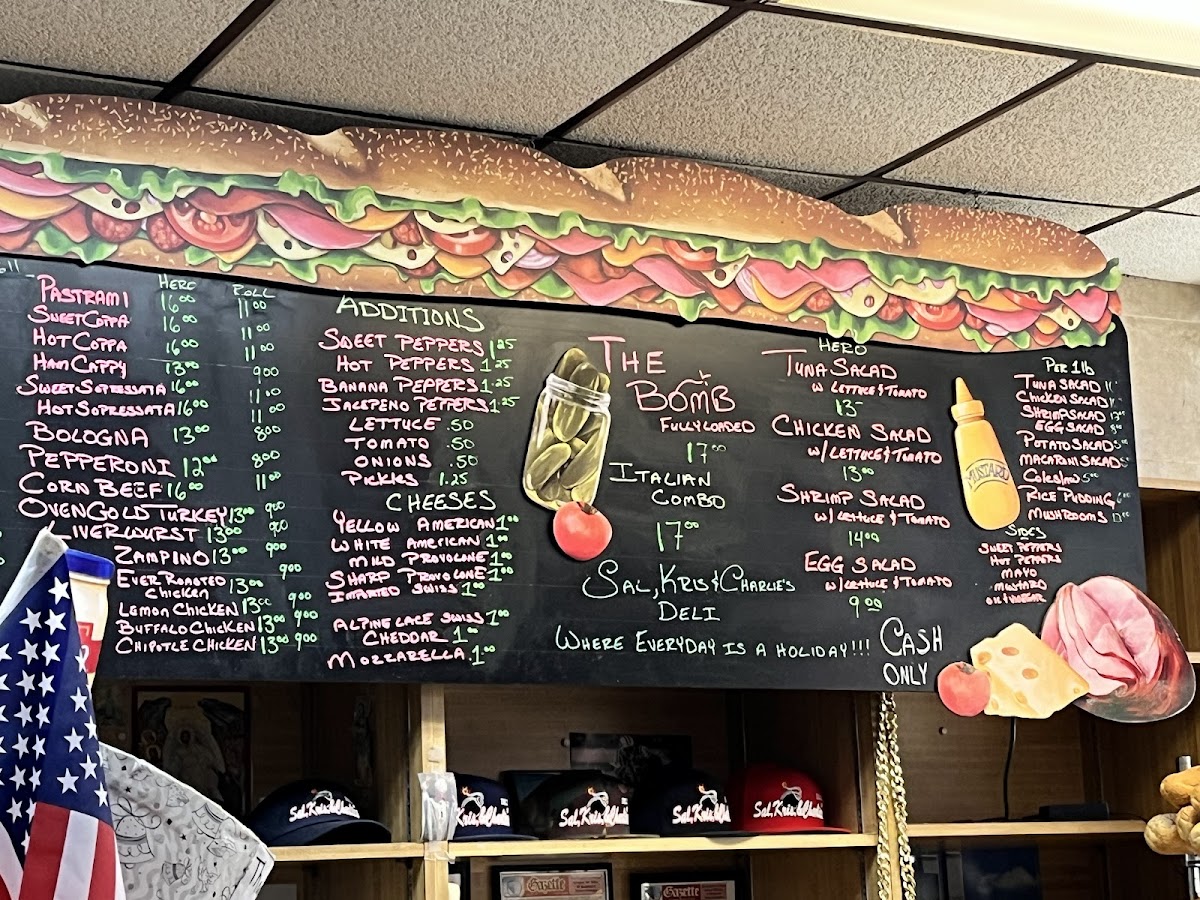 HERO ROLL
PASTRAMI 16 00 11 00
SWEET COPPA 16 00 11 00
HOT COPPA 16 00 11 00
HAM CAPPY 13 00 9 00
SWEET SOPRESSATA 16 00 11 00
HOT SOPRESSATA 16 00 11 00
BOLOGNA 13 00 8 00
PEPPERONI 12 00 8 00
CORN BEEF 16 00 11 00
OVENGOLD TURKEY 13 00 9 00
LIVERWURST 13 00 9 00
ZAMPINO 13 00 9 00
EVER ROASTED
CHICKEN 13 00 9 00
LEMON CHICKEN 13 00 9 00
BUFFALO CHICKEN 13 00 9 00
CHIPOTLE CHICKEN 13 00 9 00
ADDITIONS
SWEET PEPPERS 1.25
HOT PEPPERS 1.25
BANANA PEPPERS 1.25
JALEPENO PEPPERS 1.25
LETTUCE .50
TOMATO .50
ONIONS .50
PICKLES 1.25
CHEESES
YELLOW AMERICAN 1 00
WHITE AMERICAN 1 00
MILD PROVOLONE 1 00
SHARP PROVOLONE 1 00
IMPORTED SWISS 1 00
ALPINE LACE SWISS 1 00
CHEDDAR 1 00
MOZZARELLA 1 00
THE
BOMB
FULLY LOADED
17 00
ITALIAN
COMBO
17 00
SAL, KRIS & CHARLIE'S
DELI
WHERE EVERYDAY IS A HOLIDAY!!!
HERO
TUNA SALAD
W LETTUCE & TOMATO
13-
CHICKEN SALAD
W/LETTUCE & TOMATO
13 00
SHRIMP SALAD
W/LETTUCE & TOMATO
14 00
EGG SALAD
W/LETTUCE & TOMATO
9 00
CASH
ONLY
MUSTARD
PER 1lb
TUNA SALAD
CHICKEN SALAD
SHRIMP SALAD
EGG SALAD
POTATO SALAD
MACARONI SALAD
COLESLAW
RICE PUDDING
MUSHROOMS
SIDES
SWEET PEPPERS
HOT PEPPERS
MAYO
MUSTARD
OIL & VINEGAR
Sal, Kris & Charlie
Sal, Kris & Charlie
Sal, Kris & Charlie
Sal, Kris & Charlie
Sal, Kris & Charlie
Gazette
Gazette